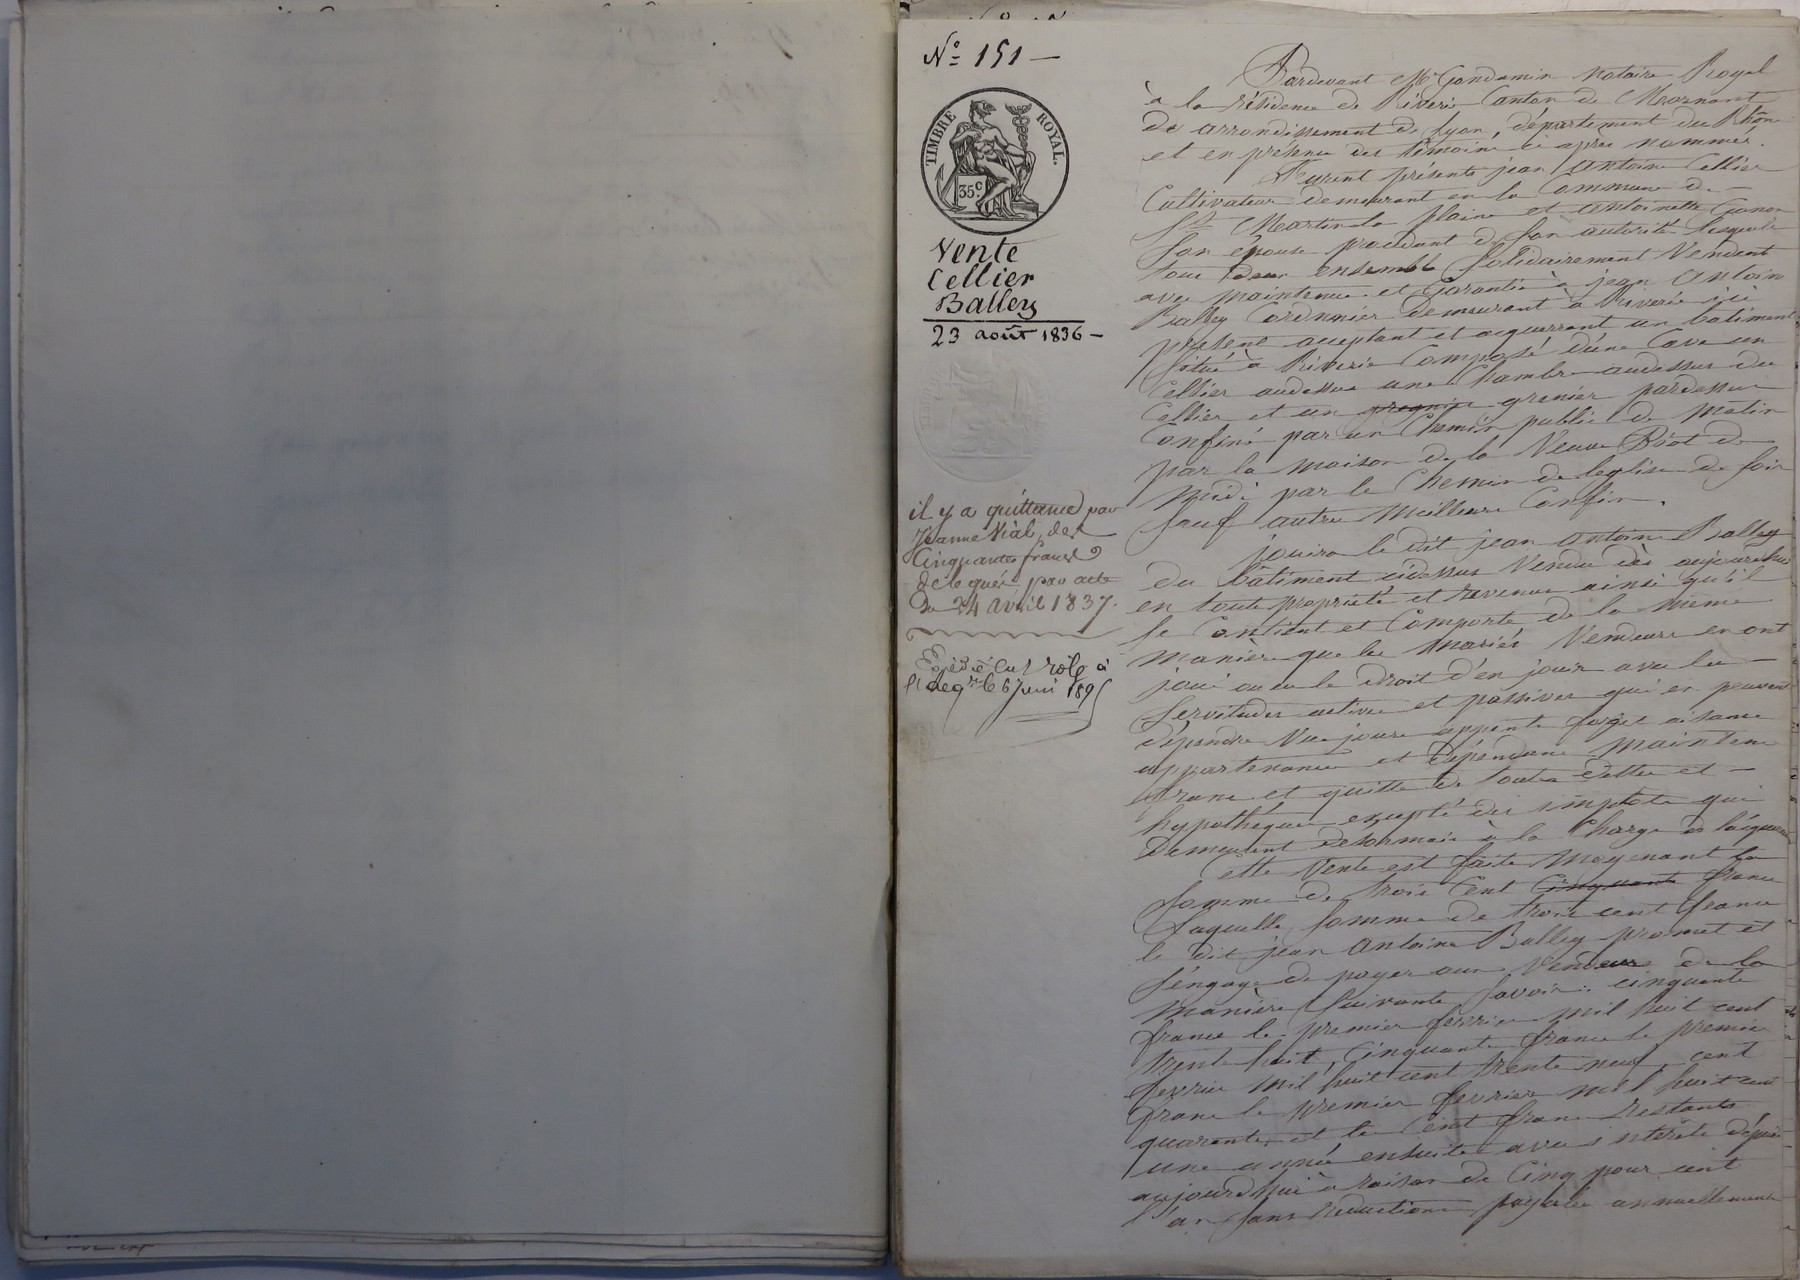 N° 151 —
TIMBRE ROYAL.
35c
Vente
Cellier
Balley
23 août 1836 —
il y a quittance par
Jeanne Vial, de
Cinquante francs
par acte
Du 24 avril 1837.
Expédié en 1 rôle à
le 6 juin
Pardevant Me Gandamin Notaire Royal
à la résidence de Riverie Canton de Mornant
de arrondissement de Lyon, département du Rhône
et en présence des témoins ci après nommés.
Furent présents jean antoine Cellier
Cultivateur demeurant en la Commune de —
St Martin la plaine et antoinette
son épouse procédant de son autorité lesquels
tous deux ensemble solidairement Vendent
avec maintenue et Garantie à jean antoine
Balley Cordonnier demeurant à Riverie ici
présent acceptant et acquerrant un batiment
situé à Riverie Composé d'une Cave un
Cellier audessus une Chambre audessus du
Cellier et un gregnier grenier pardessus
Confiné par un Chemin public de matin
par la maison de la Veuve de
midi par le Chemin de leglise de soir
sauf autre Meilleurs Confins.
jouira le dit jean antoine Balley
du bâtiment cidessus Vendu dès aujourdhui
en toute propriété et revenus ainsi qu'il
se Contient et Comporte de la même
manière que les mariés Vendeurs en ont
joui ou eu le droit d'en jouir avec les —
servitudes actives et passives qui en peuvent
dépendre Vue jours aisance
appartenances et dépendances maintenu
franc et quitte de toutes dettes et —
hypothéques excepté des impôts qui
demeurent désormais à la Charge de lacquereur
Cette Vente est faite Moyenant la
somme de trois Cent Cinquante francs
Laquelle somme de trois cent francs
le dit jean antoine Balley promet et
s'engage de payer aux Vendeurs de la
manière suivante savoir: cinquante
francs le premier fevrier mil huit cent
trente huit, cinquante francs le premier
fevrier mil huit cent trente neuf, cent
francs le premier fevrier mil huit cent
quarante et les cent francs restants
une année ensuite avec intérêts depuis
aujourdhui à raison de Cinq pour cent
l'an sans réductions payable annuellement